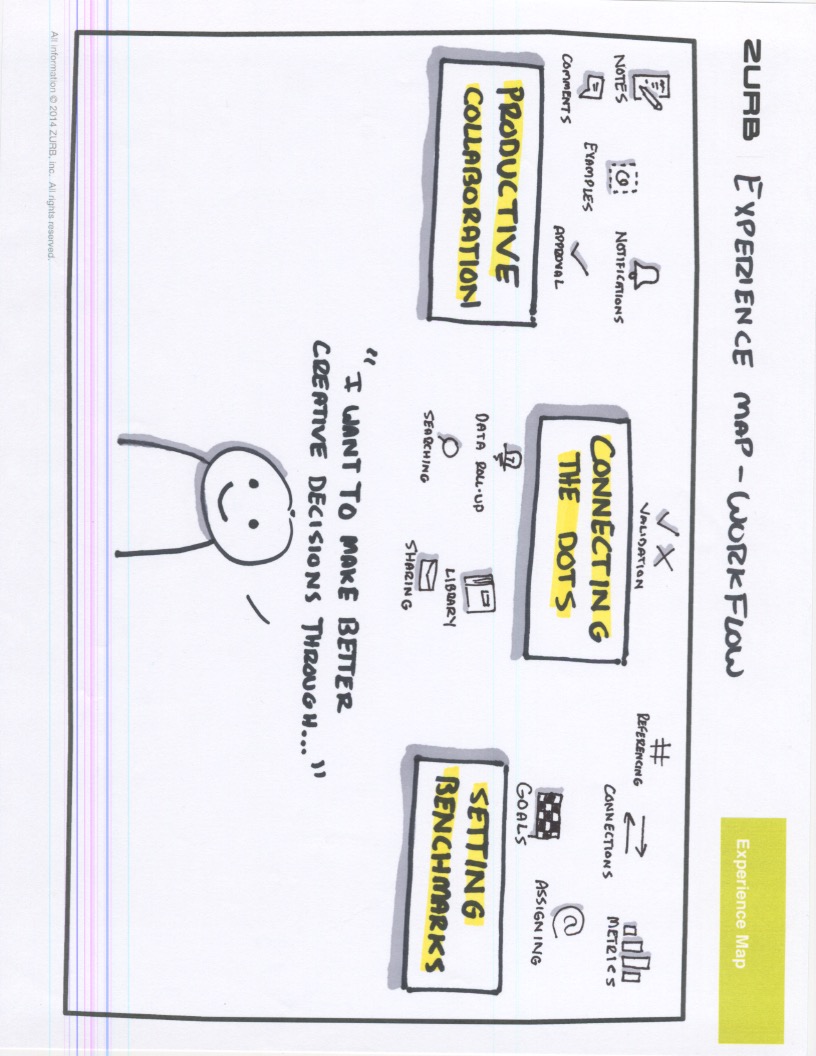 ZURB
EXPERIENCE MAP - WORKFLOW
Experience Map
NOTES
COMMENTS
EXAMPLES
NOTIFICATIONS
APPROVAL
PRODUCTIVE
COLLABORATION
VALIDATION
CONNECTING
THE DOTS
DATA ROLL-UP
SEARCHING
LIBRARY
SHARING
#
REFERENCING
CONNECTIONS
METRICS
@
ASSIGNING
GOALS
SETTING
BENCHMARKS
"I WANT TO MAKE BETTER
CREATIVE DECISIONS THROUGH..."
All information © 2014 ZURB, inc. All rights reserved.